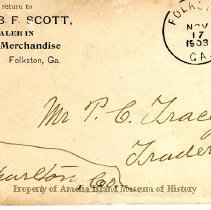 return to
B. F. SCOTT,
DEALER IN
Merchandise
Folkston, Ga.
FOLKS
NOV
17
1903
GA.
Mr P. C. Tracy
Trader
Charlton, Co.
Property of Amelia Island Museum of History